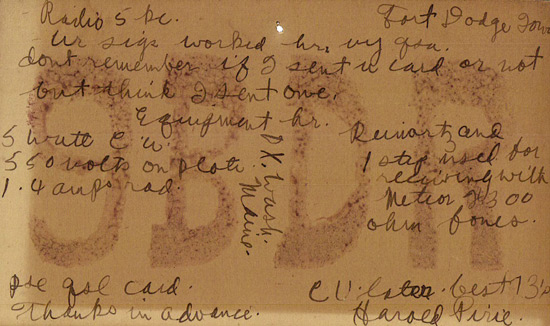 Radio 5 kc. Fort Dodge Iowa
Ur sigs worked hr, vy qsa.
dont remember if I sent u card or not
but think I sent one.
Equipment hr.
5 watt C W.
550 volts on plate.
1.4 amps rad.
DX. Wash.
Maine.
Reinartz and
1 step used for
receiving with
Meteor 2300
ohm fones.
9BDR
pse qsl card.
Thanks in advance.
C U later best 73's
Harold Pirie.